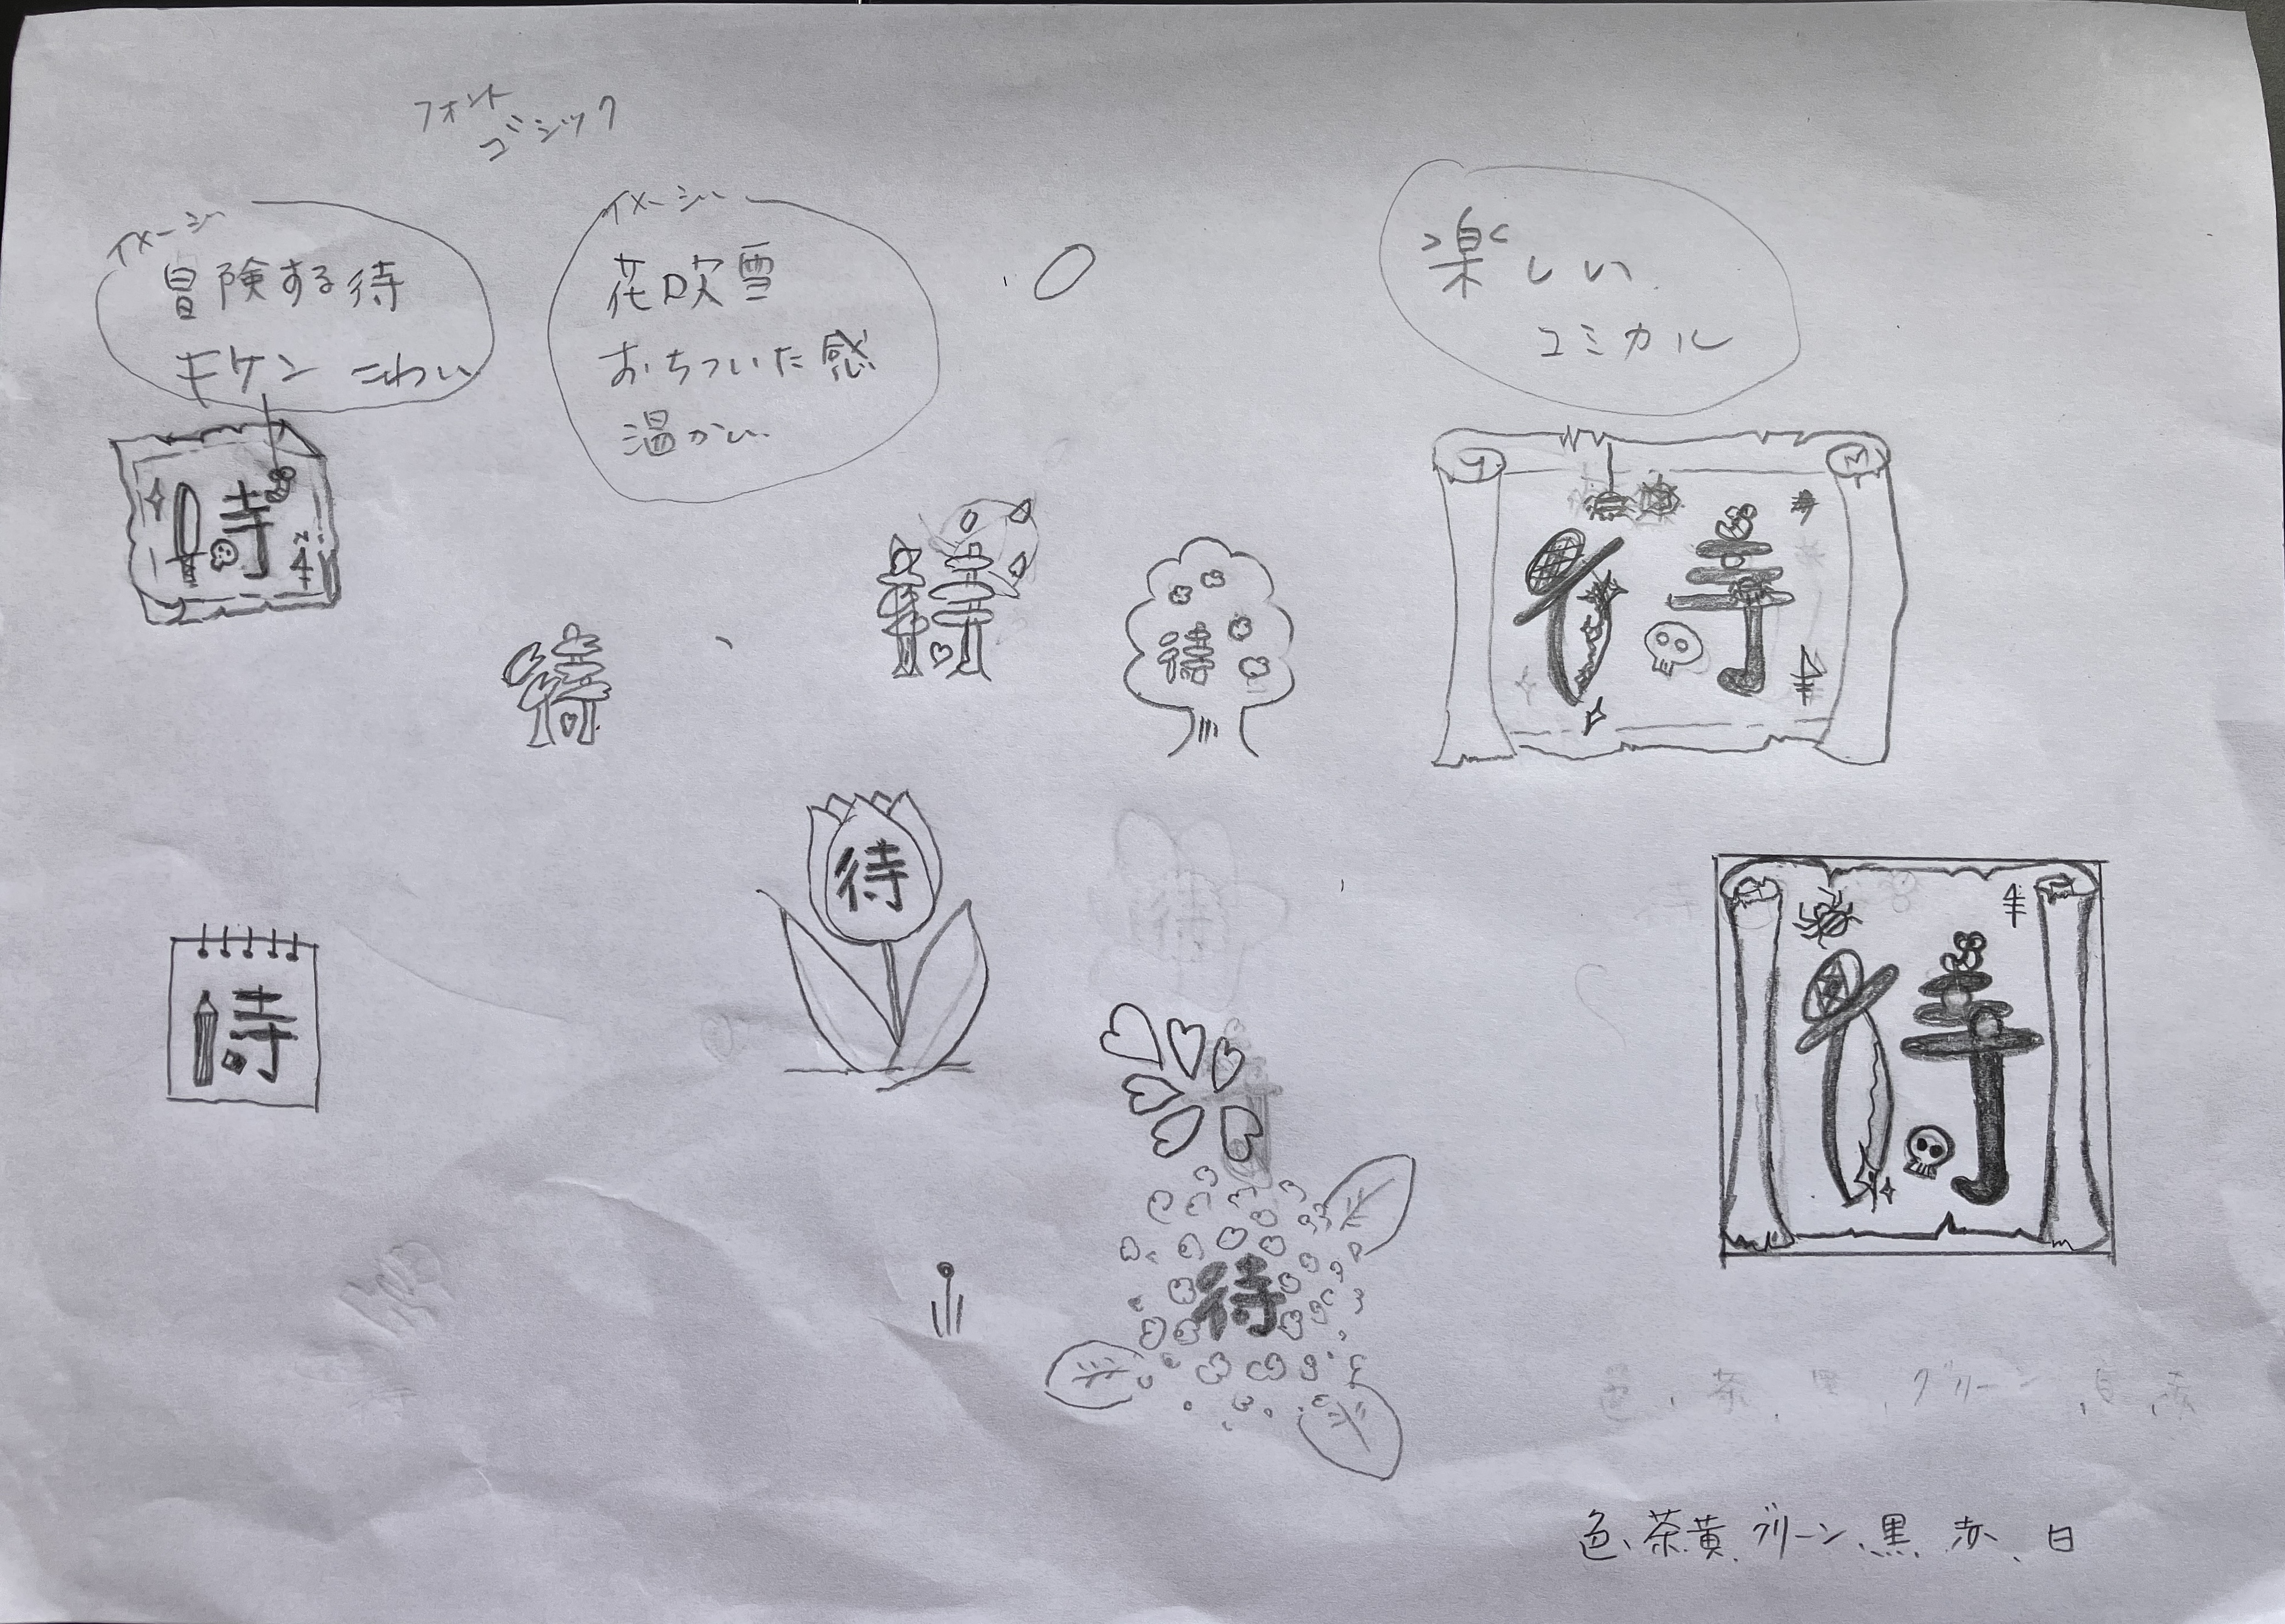 フォント
ゴシック
イメージ
冒険する待
キケン こわい
イメージ
花吹雪
おちついた感
温かい
楽しい
コミカル
待
待
待
待
待
待
待
待
待
色、茶、黒、グリーン、白、赤
色、茶、黄、グリーン、黒、赤、白